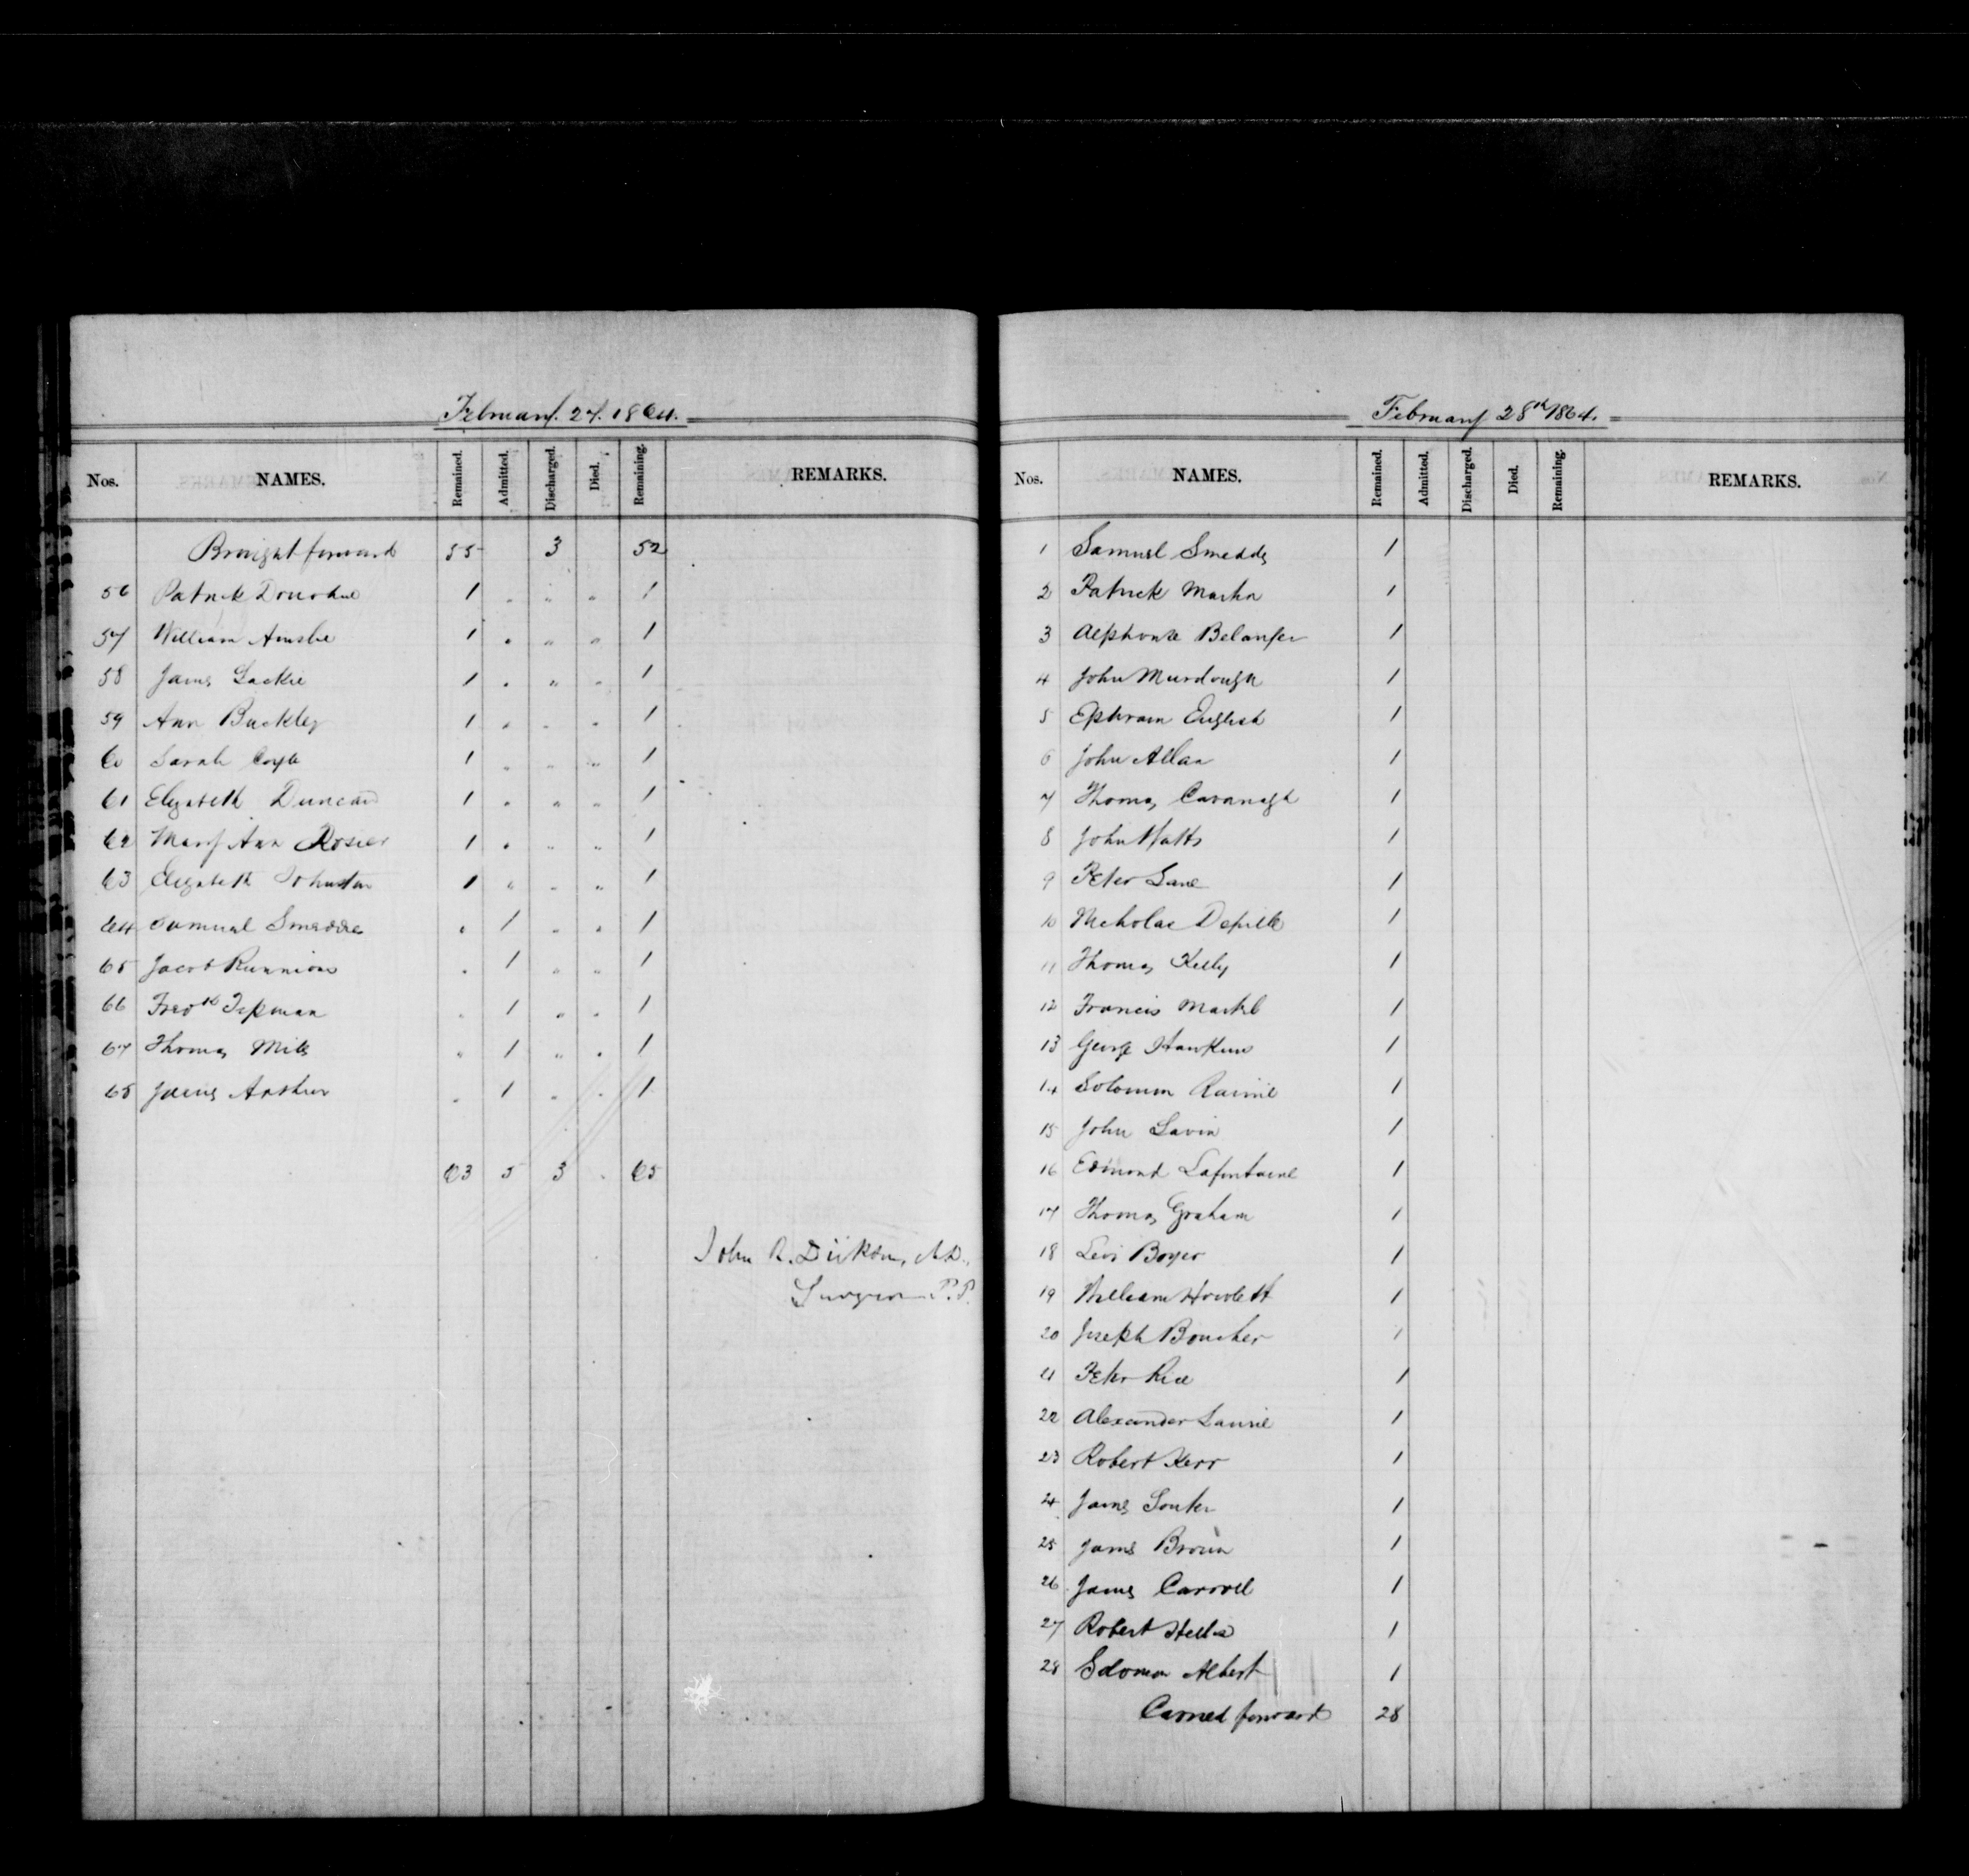 February. 27. 1864.
Nos. NAMES. Remained. Admitted. Discharged. Died. Remaining. REMARKS.
Brought forward 55 3 52
56 Patrick Donohue 1 . " " 1
57 William Amslie 1 . " " 1
58 James Lackie 1 . " " 1
59 Ann Buckley 1 . . . 1
60 Sarah Coyle 1 . " " 1
61 Elizabeth Duncan 1 . " " 1
62 Mary Ann Rosier 1 . " " 1
63 Elizabeth Johnston 1 " " " 1
64 Samuel Smeddes . 1 " . 1
65 Jacob Runnions . 1 " " 1
66 Fredk Tipman . 1 " . 1
67 Thomas Mills " 1 " . 1
68 James Arthur . 1 . . 1
63 5 3 . 65
John R. Dickson, M.D.,
Surgeon P.P.
February 28th 1864.
Nos. NAMES. Remained. Admitted. Discharged. Died. Remaining. REMARKS.
1 Samuel Smeddes 1
2 Patrick Martin 1
3 Alphonse Belanger 1
4 John Murdough 1
5 Ephraim English 1
6 John Allan 1
7 Thomas Cavanagh 1
8 John Watts 1
9 Peter Lane 1
10 Nicholas Deville 1
11 Thomas Kelly 1
12 Francis Markl 1
13 George Hawkins 1
14 Solomon Ravine 1
15 John Lavin 1
16 Edmond Lafontaine 1
17 Thomas Graham 1
18 Levi Boyer 1
19 William Howlett 1
20 Joseph Boucher 1
21 Peter Rice 1
22 Alexander Laurie 1
23 Robert Kerr 1
24 James Souter 1
25 James Brown 1
26 James Carroll 1
27 Robert 1
28 Solomon Albert 1
Carried forward 28